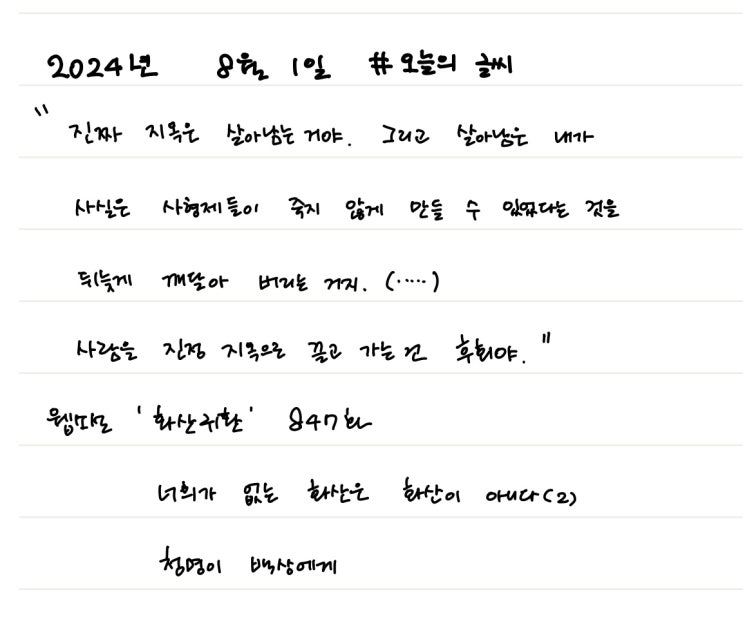 2024년 8월 1일 #오늘의 글씨
" 진짜 지옥은 살아남는 거야. 그리고 살아남은 내가
사실은 사형제들이 죽지 않게 만들 수 있었다는 것을
뒤늦게 깨달아 버리는 거지. (.....)
사람을 진정 지옥으로 끌고 가는 건 후회야. "
웹소설 '화산귀환' 847화
너희가 없는 화산은 화산이 아니다(2)
청명이 백상에게